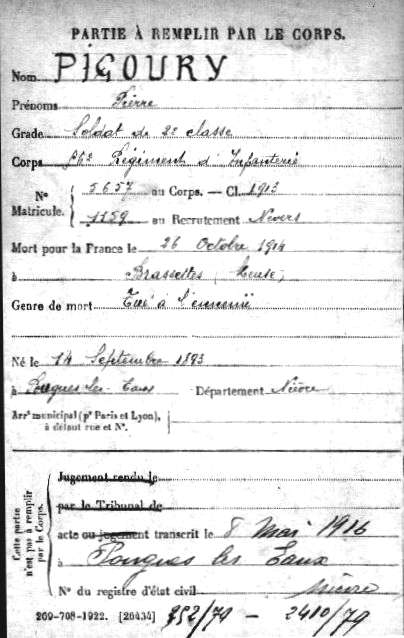 PARTIE À REMPLIR PAR LE CORPS.
Nom PIGOURY
Prénoms Pierre
Grade Soldat de 2e classe
Corps Régiment d'Infanterie
N° Matricule. { 5657 au Corps. — Cl. 1913
1159 au Recrutement Nevers
Mort pour la France le 26 Octobre 1914
à Brassettes (Meuse)
Genre de mort Tué à l'ennemi
Né le 14 Septembre 1893
à Pougues-les-Eaux Département Nièvre
Arrt municipal (pr Paris et Lyon), à défaut rue et N°.
Cette partie n'est pas à remplir par le Corps.
Jugement rendu le
par le Tribunal de
acte ou jugement transcrit le 8 Mai 1916
à Pougues les Eaux
Nièvre
N° du registre d'état civil
269-708-1922. [26434] 252/79 — 2410/79